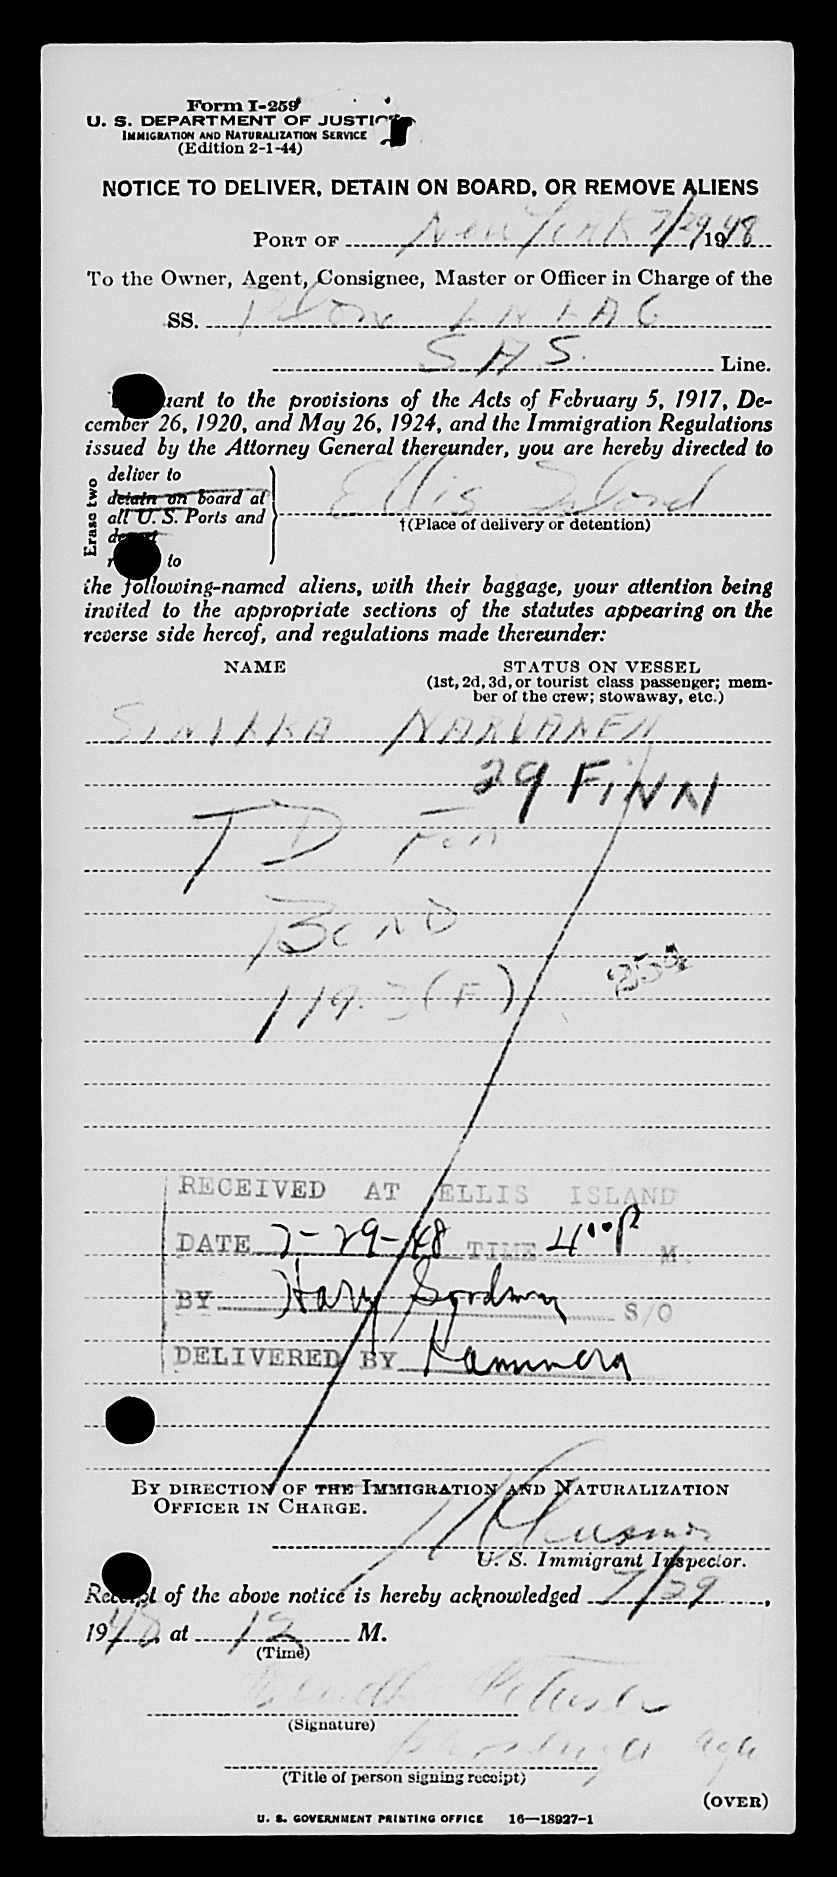 Form I-259
U. S. DEPARTMENT OF JUSTICE
IMMIGRATION AND NATURALIZATION SERVICE
(Edition 2-1-44)
NOTICE TO DELIVER, DETAIN ON BOARD, OR REMOVE ALIENS
PORT OF New York 7/29 1948
To the Owner, Agent, Consignee, Master or Officer in Charge of the
SS. Plane LN IAG
S A S. Line.
uant to the provisions of the Acts of February 5, 1917, De-
cember 26, 1920, and May 26, 1924, and the Immigration Regulations
issued by the Attorney General thereunder, you are hereby directed to
Erase two
deliver to
detain on board at
all U. S. Ports and
Ellis Island
†(Place of delivery or detention)
to
the following-named aliens, with their baggage, your attention being
invited to the appropriate sections of the statutes appearing on the
reverse side hereof, and regulations made thereunder:
NAME STATUS ON VESSEL
(1st, 2d, 3d, or tourist class passenger; mem-
ber of the crew; stowaway, etc.)
SINIKKA NARVANEN
29 FINN
TD For
BOND
119.3 (F)
259
RECEIVED AT ELLIS ISLAND
DATE 7-29-48 TIME 4 00 P M.
BY Harry S/O
DELIVERED BY
BY DIRECTION OF THE IMMIGRATION AND NATURALIZATION
OFFICER IN CHARGE.
U. S. Immigrant Inspector.
Receipt of the above notice is hereby acknowledged 7/29,
1948, at 12 M.
(Time)
(Signature)
Passenger Agt
(Title of person signing receipt)
(OVER)
U. S. GOVERNMENT PRINTING OFFICE 16—18927-1